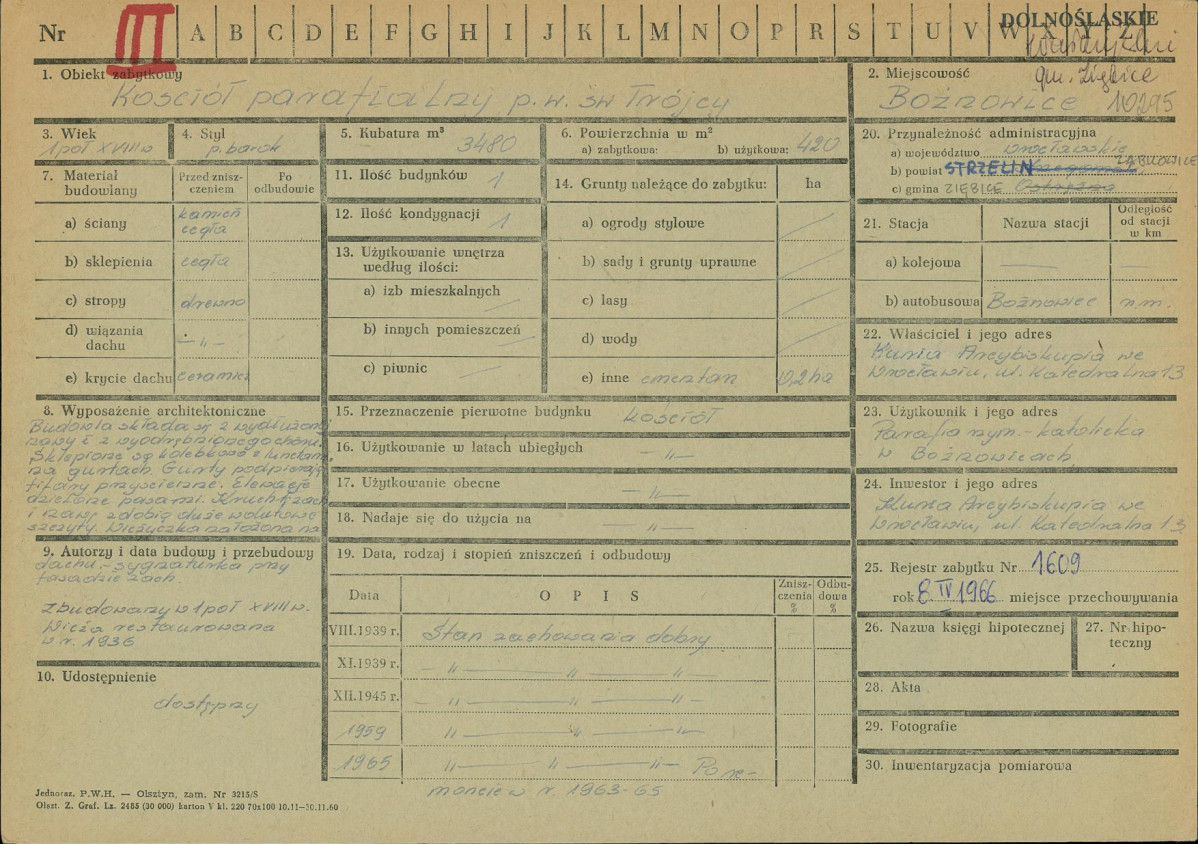 Nr III A B C D E F G H I J K L M N O P R S T U V W X Y Z
DOLNOŚLĄSKIE
gm. Ziębice
10295
1. Obiekt zabytkowy
Kościół parafialny p.w. św Trójcy
2. Miejscowość
Bożnowice
3. Wiek
1 poł XVIII w
4. Styl
p. barok
5. Kubatura m³
3480
6. Powierzchnia w m²
a) zabytkowa: b) użytkowa: 420
7. Materiał budowlany
Przed zniszczeniem
Po odbudowie
a) ściany kamień cegła
b) sklepienia cegła
c) stropy drewno
d) wiązania dachu — „ —
e) krycie dachu ceramicz
8. Wyposażenie architektoniczne
Budowla składa się z wydłużonej
nawy i z wyodrębnionego chóru.
Sklepione są kolebkowo z lunetami
na gurtach. Gurty podpierają
filary przyścienne. Elewacje
dzielone pasami. Kruchtę zach
i nawę zdobią duże wolutowe
szczyty. Wieżyczka założona na
9. Autorzy i data budowy i przebudowy
dachu - sygnaturka przy
fasadzie zach.
Zbudowany w 1 poł XVIII w.
Wieża restaurowana
w r. 1936
10. Udostępnienie
dostępny
11. Ilość budynków 1
12. Ilość kondygnacji 1
13. Użytkowanie wnętrza
według ilości:
a) izb mieszkalnych
b) innych pomieszczeń
c) piwnic
14. Grunty należące do zabytku: ha
a) ogrody stylowe
b) sady i grunty uprawne
c) lasy
d) wody
e) inne cmentarz 0,2 ha
15. Przeznaczenie pierwotne budynku kościół
16. Użytkowanie w latach ubiegłych — „ —
17. Użytkowanie obecne — „ —
18. Nadaje się do użycia na „ —
19. Data, rodzaj i stopień zniszczeń i odbudowy
Data OPIS Zniszczenia % Odbudowa %
VIII.1939 r. Stan zachowania dobry
XI.1939 r. — „ — „ — „ —
XII.1945 r. — „ — „ — „ —
1959 „ — „ — „ —
1965 „ — „ — „ — Po re-
moncie w r. 1963-65
20. Przynależność administracyjna
a) województwo wrocławskie
b) powiat STRZELIN ZĄBKOWICE
c) gmina ZIĘBICE
21. Stacja Nazwa stacji Odległość od stacji w km
a) kolejowa — —
b) autobusowa Bożnowice n.m.
22. Właściciel i jego adres
Kuria Arcybiskupia we
Wrocławiu, ul. Katedralna 13
23. Użytkownik i jego adres
Parafia rzym.-katolicka
w Bożnowicach
24. Inwestor i jego adres
Kuria Arcybiskupia we
Wrocławiu, ul. Katedralna 13
25. Rejestr zabytku Nr 1609
rok 8 IV 1966 miejsce przechowywania
26. Nazwa księgi hipotecznej
27. Nr hipoteczny
28. Akta
29. Fotografie
30. Inwentaryzacja pomiarowa
Jednoraz. P.W.H. — Olsztyn, zam. Nr 3215/S
Olszt. Z. Graf. Lz. 2485 (30 000) karton V kl. 220 70x100 10.11—30.11.60